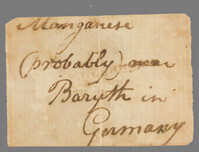 Manganese
(probably) near
Baryth in
Germany